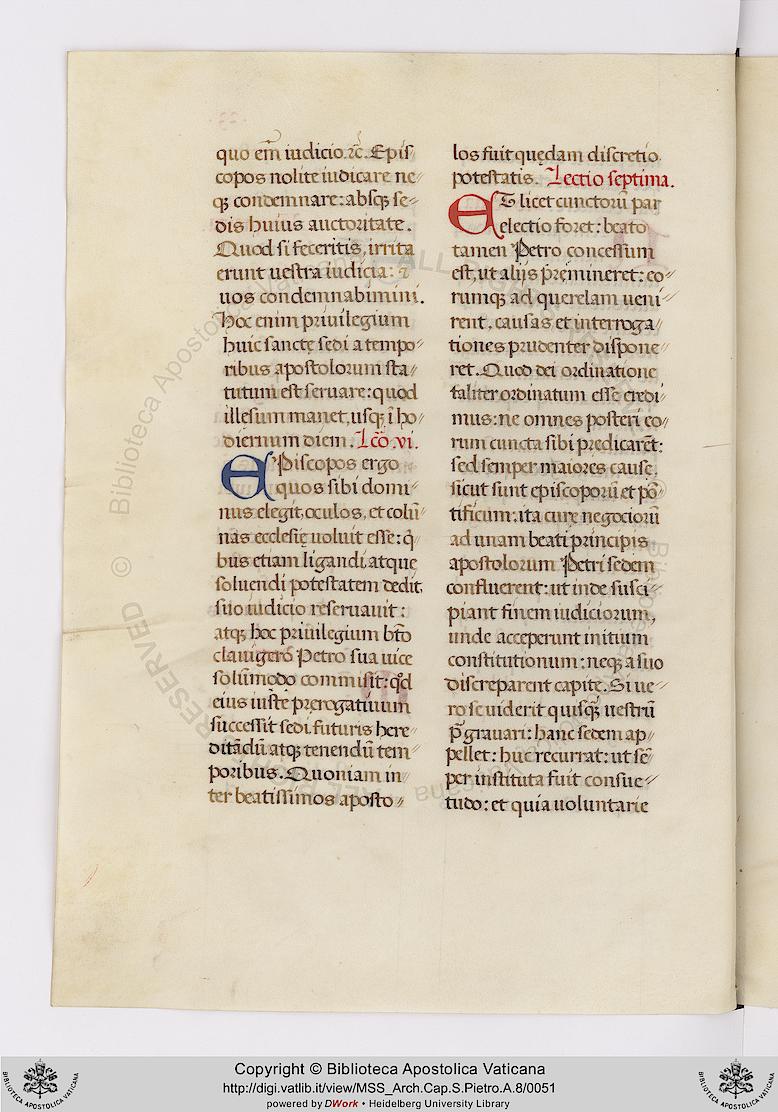 quo em̄ iudicio. ⁊c̄. Epis
copos nolite iudicare ne
qꝫ condemnare: absqꝫ se⸗
dis huius auctoritate.
Quod si feceritis, irrita
erunt uestra iudicia: ⁊
uos condemnabimini.
Hoc enim priuilegium
huic sanctę sedi a tempo⸗
ribus apostolorum sta⸗
tutum est seruare: quod
illesum manet, usqꝫ ī ho⸗
diernum diem. Lc̄o. vi.
EPiscopos ergo
quos sibi domi⸗
nus elegit, oculos, et colū⸗
nas ecclesię uoluit esse: q̇
bus etiam ligandi, atque
soluendi potestatem dedit,
suo iudicio reseruauit:
atqꝫ hoc priuilegium bt̄o
clauigero Petro sua uice
solūmodo commisit: qd̓
eius iuste prerogatiuum
successit sedi futuris here⸗
ditādū atqꝫ tenendū tem⸗
poribus. Quoniam in⸗
ter beatissimos aposto⸗
los fuit quędam discretio
potestatis. Lectio septima.
ET licet cunctorū par
electio foret: beato
tamen Petro concessum
est, ut alijs premineret: eo⸗
rumqꝫ ad querelam ueni⸗
rent, causas et interroga⸗
tiones prudenter dispone⸗
ret. Quod dei ordinatione
taliter ordinatum esse credi⸗
mus: ne omnes posteri eo⸗
rum cuncta sibi predicarēt:
sed semper maiores cause,
sicut sunt episcoporū et pō⸗
tificum: ita curę negociorū
ad unam beati principis
apostolorum Petri sedem
confluerent: ut inde susci⸗
piant finem iudiciorum,
unde acceperunt initium
constitutionum: neqꝫ a suo
discreparent capite. Si ue⸗
ro se uiderit quisqꝫ̄ uestrū
p̄grauari: hanc sedem ap⸗
pellet: huc recurrat: ut sē⸗
per instituta fuit consue⸗
tudo: et quia uoluntarie
© Biblioteca Apostolica Vaticana
ALL RIGHTS RESERVED
Copyright © Biblioteca Apostolica Vaticana
http://digi.vatlib.it/view/MSS_Arch.Cap.S.Pietro.A.8/0051
powered by DWork • Heidelberg University Library
BIBLIOTECA APOSTOLICA VATICANA
BIBLIOTECA APOSTOLICA VATICANA